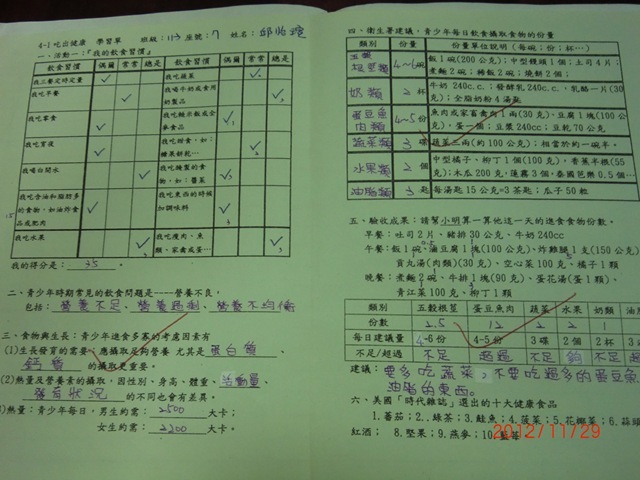 4-1 吃出健康 學習單 班級：113 座號：7 姓名：邱怡瑄
一、活動一：『我的飲食習慣』
飲食習慣 偶爾 常常 總是 飲食習慣 偶爾 常常 總是
我三餐定時定量 我吃蔬菜
我吃早餐 我喝牛奶或食用奶製品
我吃零食 我吃糙米飯或全麥食品
我吃宵夜 我吃甜食，如：糖果餅乾…
我喝白開水 我吃醃製的食物，如：醬菜
我吃含油和脂肪多的食物，如油炸食品或肥肉 我吃東西的時候加調味料
我吃水果 我吃瘦肉、魚類、家禽或蛋…
我的得分是：35。
二、青少年時期常見的飲食問題是----營養不良，
包括：營養不足、營養過剩、營養不均衡
三、食物與生長：青少年進食多寡的考慮因素有
(1)生長發育的需要：應攝取足夠營養 尤其是 蛋白質、
鈣質 的攝取更重要。
(2)熱量及營養素的攝取，因性別、身高、體重、活動量、
發育狀況 的不同也會有差異。
熱量：青少年每日，男生約需：2500 大卡；
女生約需：2200 大卡。
四、衛生署建議，青少年每日飲食攝取食物的份量
類別 份量 份量單位說明（每碗；份；杯…）
五穀根莖類 4~6碗 飯1碗(200公克)；中型饅頭1個；土司4片；煮麵2碗；燒餅2個；
奶類 2杯 牛奶 240c.c.；發酵乳 240c.c.，乳酪一片(30克)；全脂奶粉4湯匙
蛋豆魚肉類 4~5份 魚肉或家畜禽肉1兩(30克)、豆腐1塊(100公克)、蛋一個；豆漿240cc；豆乾70公克
蔬菜類 3碟 蔬菜三兩(約100公克)；相當於約一碗半。
水果類 2個 中型橘子、柳丁1個(100克)，香蕉半根(55克)；木瓜200克，蓮霧3個，泰國芭樂0.5個…
油脂類 3匙 每湯匙15公克=3茶匙；瓜子50粒
五、驗收成果：請幫小明算一算他這一天的進食食物份數。
早餐：吐司2片、肉鬆30公克、牛奶240cc
午餐：飯1碗、滷豆腐1塊(100公克)、炸雞腿1支(150公克)
貢丸湯(肉類)(30克)、空心菜100克、橘子1顆
晚餐：煮麵2碗、牛排1塊(90克)、蛋花湯(蛋1顆)、
青江菜100克、柳丁1顆
類別 五穀根莖 蛋豆魚肉 蔬菜 水果 奶類 油
份數 2.5 12 2 2 1
每日建議量 4-6份 4-5份 3碟 2個 2杯 3
不足/超過 不足 超過 不足 夠 不足 超
建議：要多吃蔬菜，不要吃過多的蛋豆魚
油脂的東西。
六、美國「時代雜誌」選出的十大健康食品
1.番茄；2..綠茶；3.鮭魚；4.菠菜；5.花椰菜；6.蒜頭
紅酒； 8.堅果；9.燕麥；10.藍莓
2012/11/29